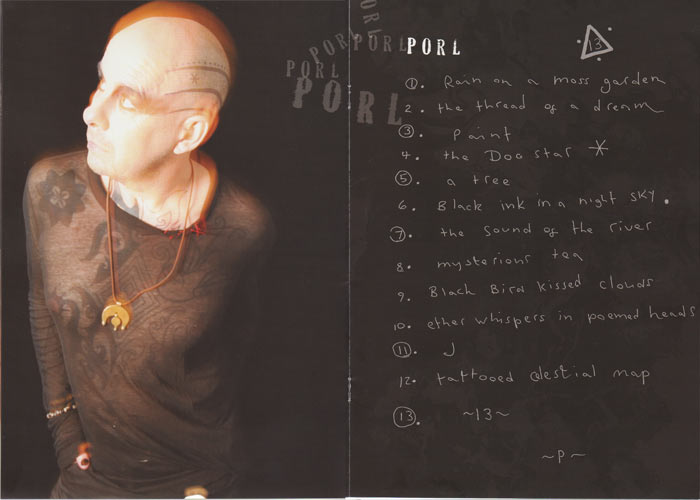 PORL
PORL
PORL
PORL
PORL
PORL
13
1. Rain on a moss garden
2. the thread of a dream
3. Paint
4. the Dog star *
5. a tree
6. Black ink in a night sky.
7. the sound of the river
8. mysterious tea
9. Black Bird kissed clouds
10. ether whispers in poemed heads
11. J
12. tattooed celestial map
13. ~13~
~P~